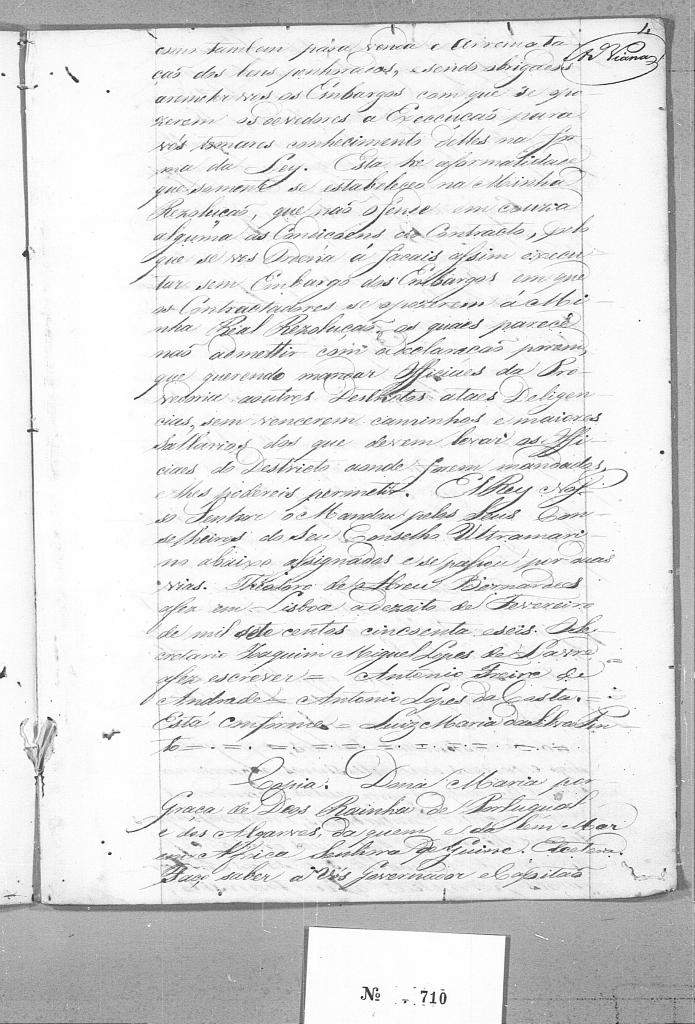 4
A. Viana
tambem para venda e Arremata
çaõ dos bens penhorados, e sendo obrigados
a remeter vos os Embargos com que se opo
zerem os devedores a Execuçaõ para
vós tomares conhecimento delles na for
ma da Ley. Esta he a formalidade
que somente se estabeleçeo na Minha
Rezoluçaõ, que naõ ofende em couza
alguma as Condiçoens do Contracto, pelo
que se vos Ordena a façais assim execu
tar sem Embargo dos Embargos em que
os Contractadores se opozerem a Mi-
nha Real Rezoluçaõ, os quaes parece
naõ admettir com a declaraçaõ porem,
que querendo mandar Officiaes da Pro-
vedoria a outros Destrictos a taes Deligen-
cias, sem vencerem caminhos e maiores
Sallarios dos que devem levar os Offi-
ciaes do Destricto aonde forem mandados,
e lhes podereis permetir. ElRey Nos-
so Senhor o Mandou pelos Seus Con-
selheiros do Seu Conselho Ultramari-
no abaixo assignados e se passou por duas
vias. Theodoro de Abreu Bernardes
a fez em Lisboa a dezoito de Fevereiro
de mil sete centos cincoenta e seis. O Se-
cretario Joaquim Miguel Lopes de Lavre
a fez escrever = Antonio Freire de
Andrade = Antonio Lopes da Costa. =
Está conforme = Luiz Maria da Silva Pin
to = . = . = . = . = . = . = . = . = . =
Copia. Dona Maria por
Graça de Deos Rainha de Portugual
e dos Algarves, da quem e da lem Mar
em Africa Senhora de Guiné. Etcetera
Faço saber a Vós Governador e Capitaõ
Nº 710